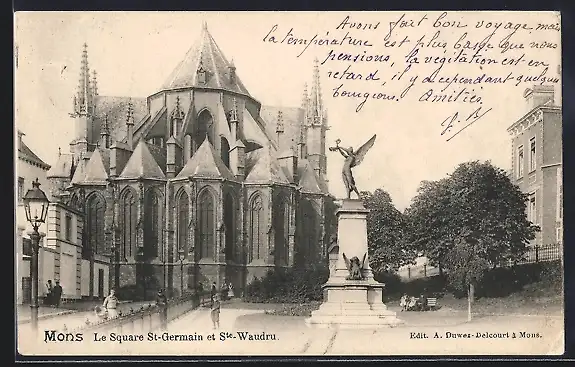 Avons fait bon voyage mais
la température est plus basse que nous
pensions, la végitation est en
retard, il y a cependant quelques
bourgeons. Amitiés
Mons Le Square St-Germain et Ste-Waudru.
Edit. A. Duwez-Delcourt à Mons.